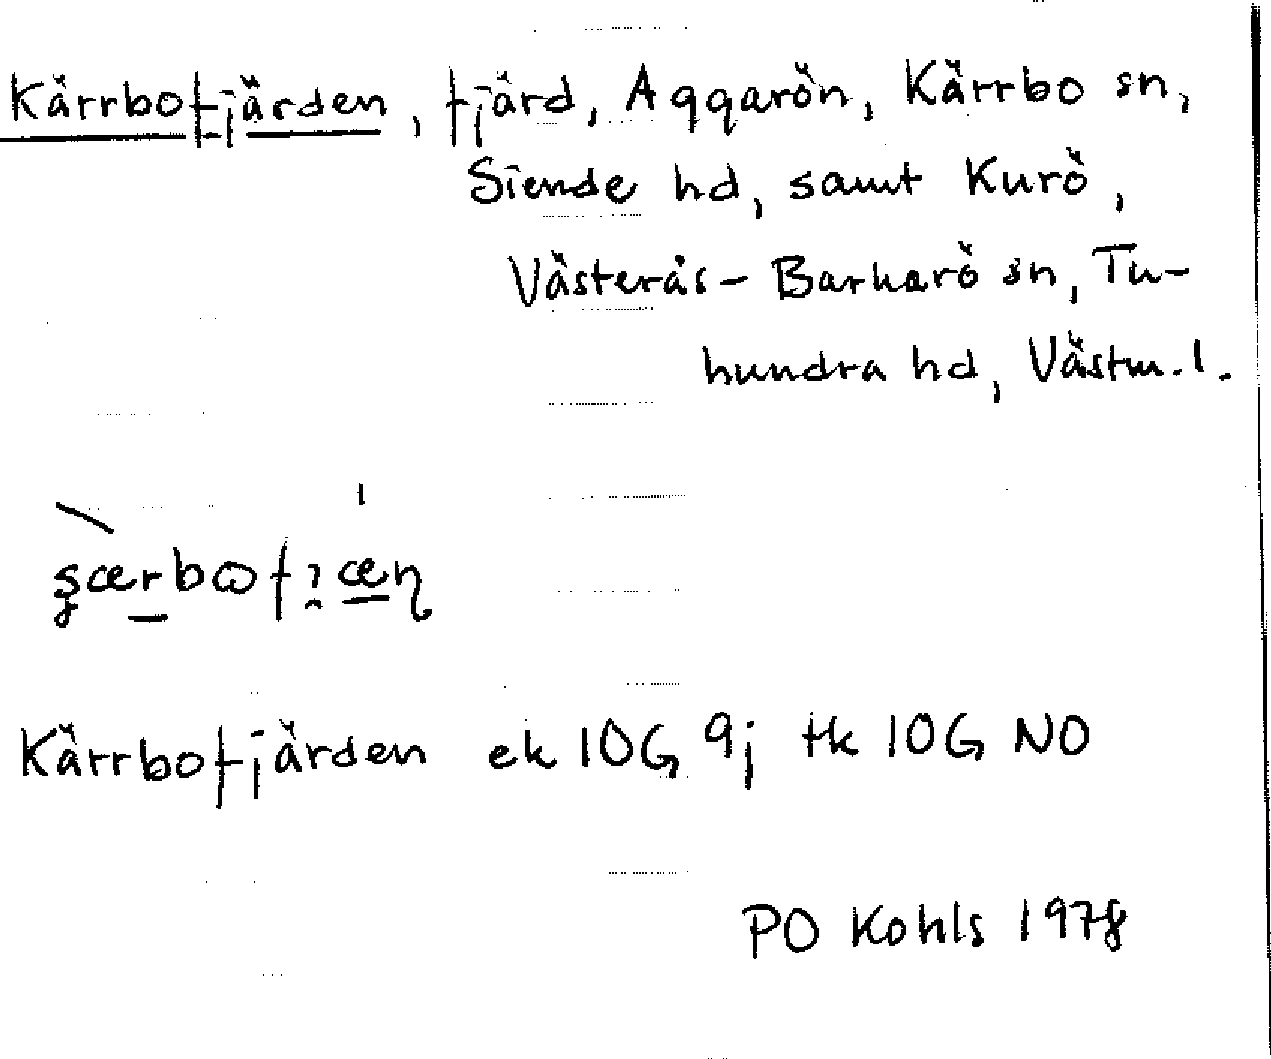 Kärrbofjärden, fjärd, Aggarön, Kärrbo sn,
Siende hd, samt Kurö,
Västerås-Barkarö sn, Tu-
hundra hd, Västm. l.
Kärrbofjärden ek 10G 9j tk 10G NO
PO Kohls 1978